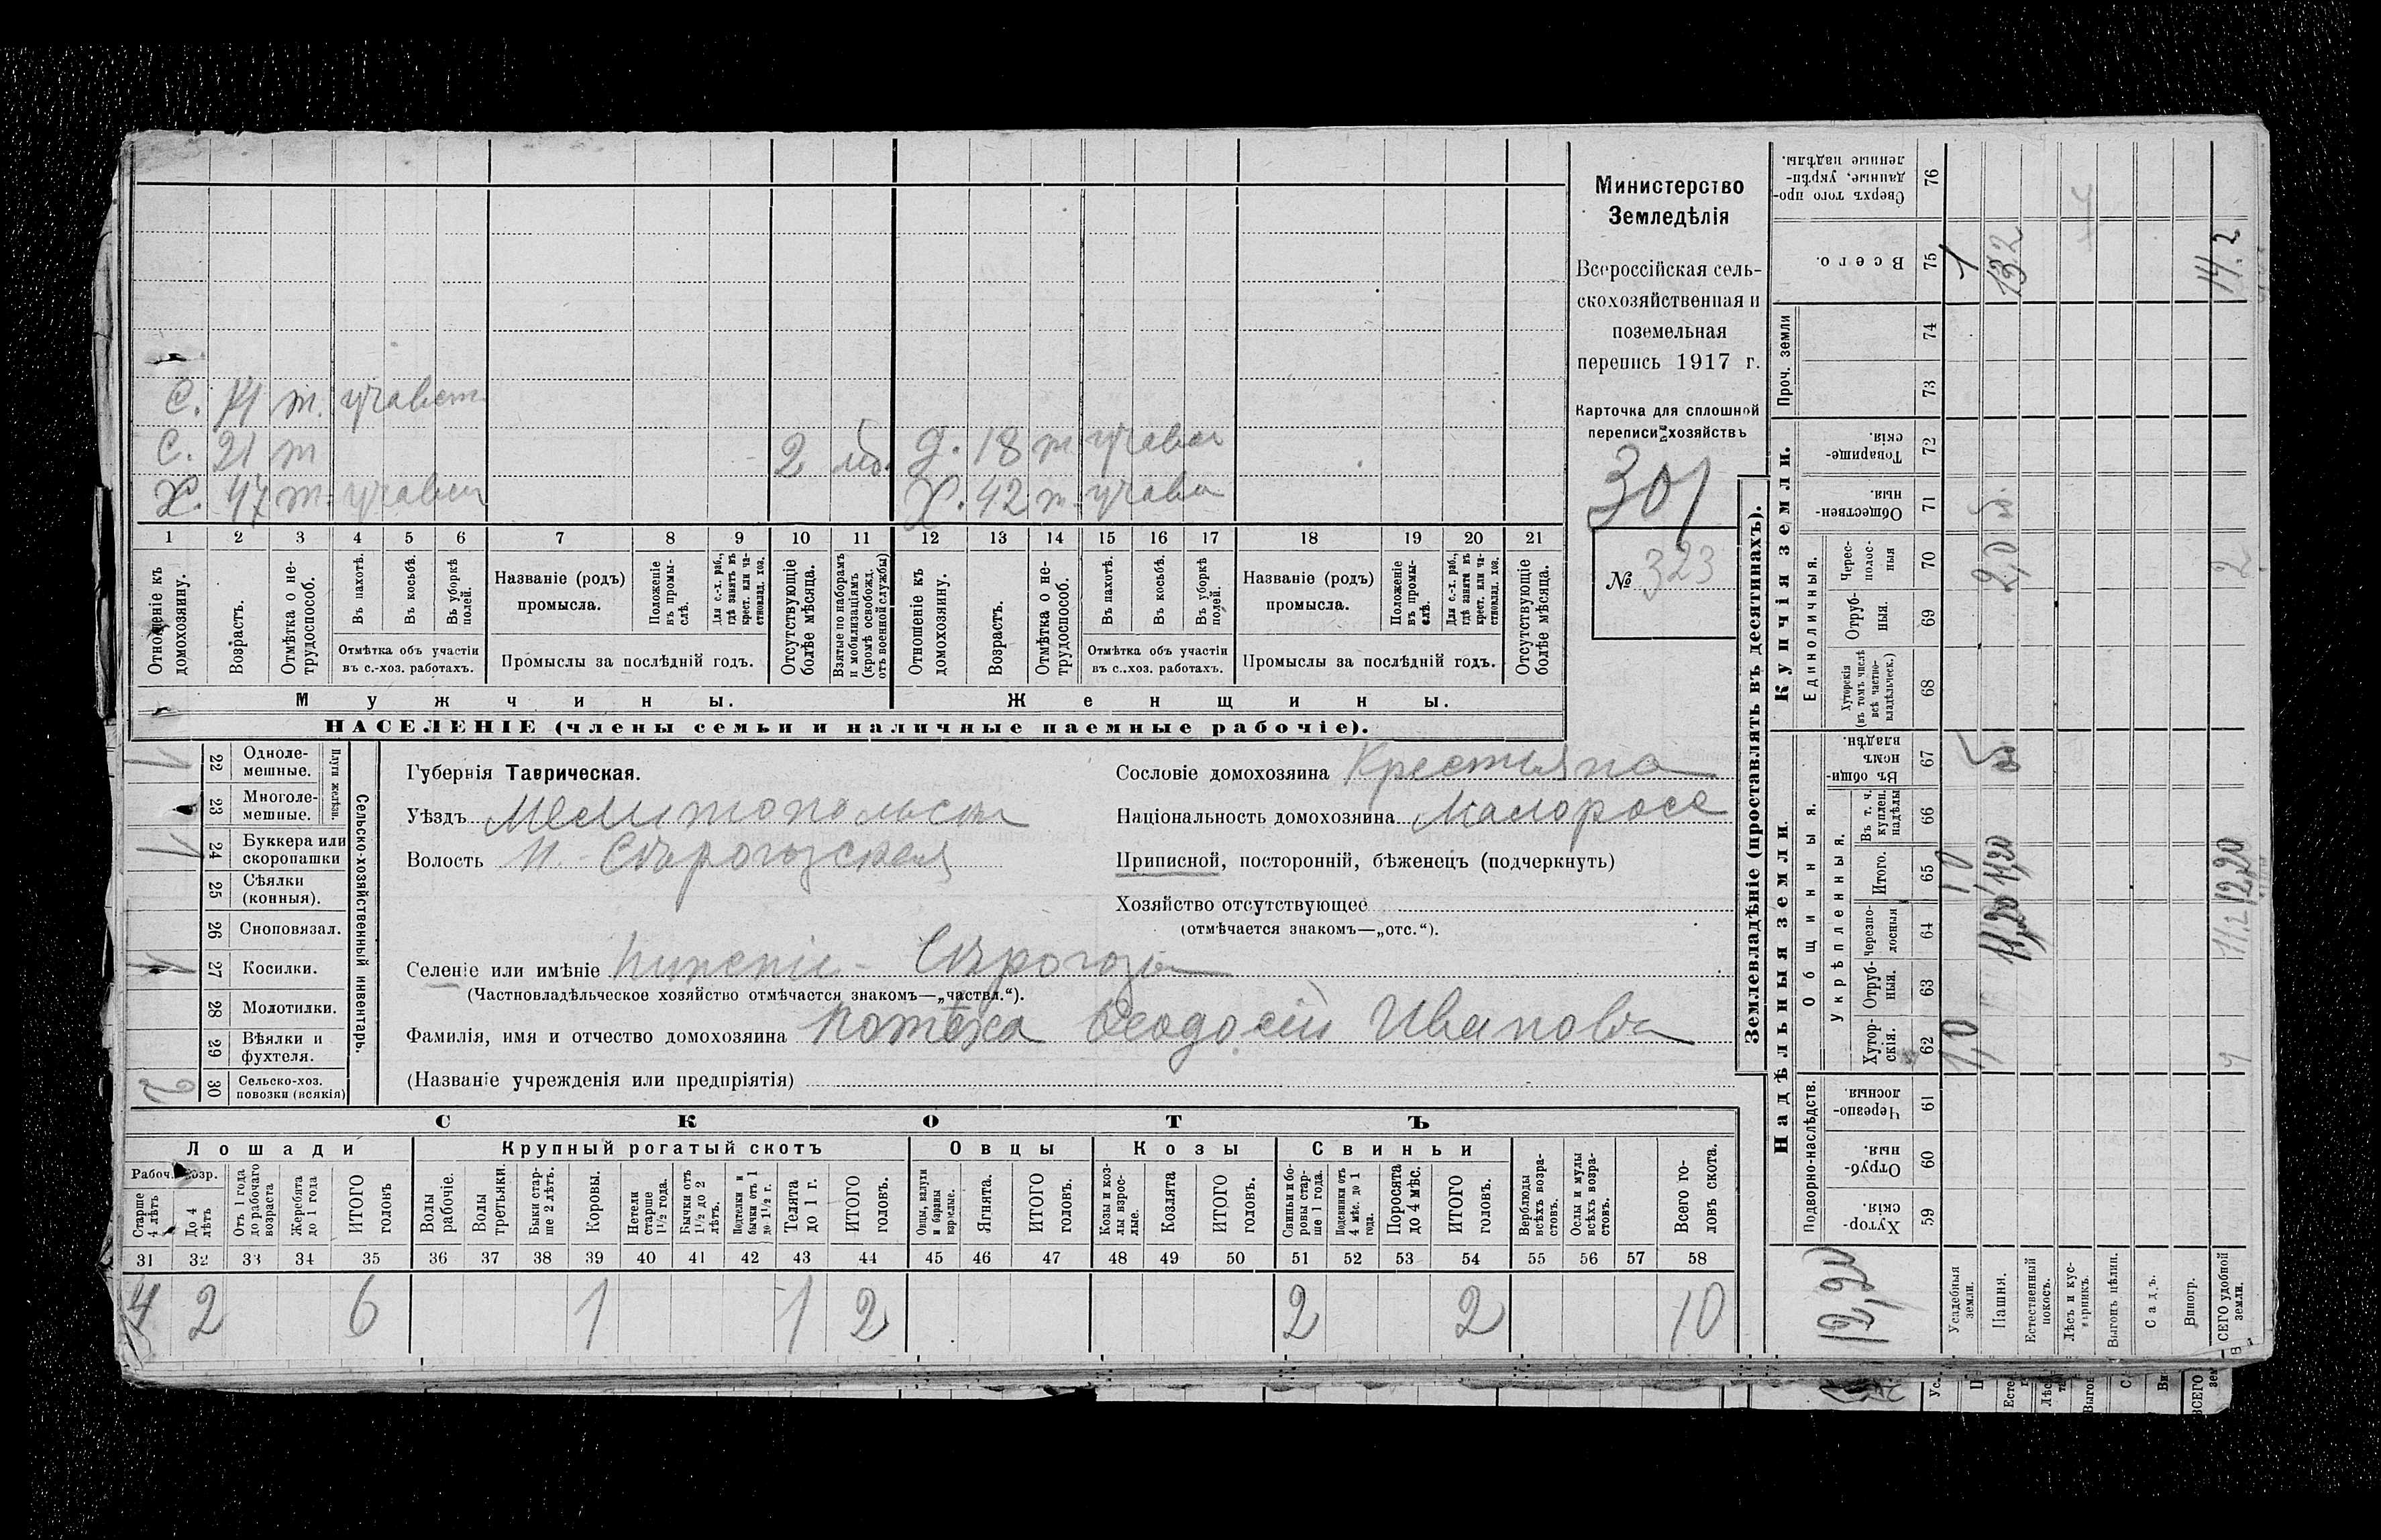 С. 14 т. участ
С. 21 т 2 мб. д. 18 т участ
Х. 47 т. участ Х. 42 т. участ
1 2 3 4 5 6 7 8 9 10 11 12 13 14 15 16 17 18 19 20 21
Отношеніе къ домохозяину.
Возрастъ.
Отмѣтка о нетрудоспособ.
Въ пахотѣ.
Въ косьбѣ.
Въ уборкѣ полей.
Отмѣтка объ участіи въ с.-хоз. работахъ.
Названіе (родъ) промысла.
Положеніе въ промыслѣ.
Для с.-х. раб., гдѣ занятъ въ крест. или частновлад. хоз.
Промыслы за послѣдній годъ.
Отсутствующіе болѣе мѣсяца.
Взятые по наборамъ и мобилизаціямъ (кромѣ освобожд. отъ военной службы)
Отношеніе къ домохозяину.
Возрастъ.
Отмѣтка о нетрудоспособ.
Въ пахотѣ.
Въ косьбѣ.
Въ уборкѣ полей.
Отмѣтка объ участіи въ с..хоз. работахъ.
Названіе (родъ) промысла.
Положеніе въ промыслѣ.
Для с.-х. раб., гдѣ занята въ крест. или частновлад. хоз.
Промыслы за послѣдній годъ.
Отсутствующіе болѣе мѣсяца.
Мужчины. Женщины.
НАСЕЛЕНІЕ (члены семьи и наличные наемные рабочіе).
Министерство
Земледѣлія
Всероссійская сель-
скохозяйственная и
поземельная
перепись 1917 г.
Карточка для сплошной
переписи хозяйствъ
301
№ 323
22 Одноле-мешные.
23 Многоле-мешные.
Плуги желѣзн.
24 Буккера или скоропашки
25 Сѣялки (конныя).
26 Сноповязал.
27 Косилки.
28 Молотилки.
29 Вѣялки и фухтеля.
30 Сельско-хоз. повозки (всякія)
2
Сельско-хозяйственный инвентарь.
Губернія Таврическая.
Уѣздъ Мелитопольскій
Волость Н. Сѣрогозская
Селеніе или имѣніе Нижніе - Сѣрогозы
(Частновладѣльческое хозяйство отмѣчается знакомъ—„частвл.“).
Фамилія, имя и отчество домохозяина Ѳеодосій Ивановъ
(Названіе учрежденія или предпріятія)
Сословіе домохозяина Крестьяна
Національность домохозяина Малоросс
Приписной, посторонній, бѣженецъ (подчеркнуть)
Хозяйство отсутствующее
(отмѣчается знакомъ—„отс.“).
СКОТЪ
Лошади Крупный рогатый скотъ Овцы Козы Свиньи
Рабоч. возр.
Старше 4 лѣтъ
До 4 лѣтъ
Отъ 1 года до рабочаго возраста
Жеребята до 1 года
ИТОГО головъ
Волы рабочіе.
Волы третьяки.
Быки старше 2 лѣтъ.
Коровы.
Нетели старше 1½ года.
Бычки отъ 1½ до 2 лѣтъ.
Подтелки и бычки отъ 1 до 1½ г.
Телята до 1 г.
ИТОГО головъ.
Овцы, валухи и бараны взрослые.
Ягнята.
ИТОГО головъ.
Козы и козлы взрослые.
Козлята
ИТОГО головъ.
Свиньи и боровы старше 1 года.
Подсвинки отъ 4 мѣс. до 1 года.
Поросята до 4 мѣс.
ИТОГО головъ.
Верблюды всѣхъ возрастовъ.
Ослы и мулы всѣхъ возрастовъ.
Всего головъ скота.
31 32 33 34 35 36 37 38 39 40 41 42 43 44 45 46 47 48 49 50 51 52 53 54 55 56 57 58
4 2 6 1 1 2 2 2 10
Землевладѣніе (проставлять въ десятинахъ).
Надѣльныя земли. Купчія земли. Проч. земли
Подворно-наслѣдств.
Общинныя.
Укрѣпленныя.
Единоличныя.
Хуторскія. 59
Отрубныя. 60
Черезполосныя 61
Хуторскія. 62
Отрубныя. 63
Черезполосныя 64
Итого. 65
Въ т. ч. куплен. надѣлы 66
Въ общинномъ владѣн. 67
Хуторскія (въ томъ числѣ всѣ частновладѣльческ.) 68
Отрубныя. 69
Черезполосныя 70
Общественныя. 71
Товарищескія. 72
73
74
Всего. 75
Сверхъ того проданные, укрѣпленные надѣлы. 76
12,20
Усадебныя земли. 1,0 1,0 1
Пашня. 11,20 11,20 2,0 132
Естественный покосъ.
Лѣсъ и кустарникъ.
Выгонъ цѣлин.
Садъ.
Виногр.
ВСЕГО удобной земли. 11,2 12,20 2 14.2